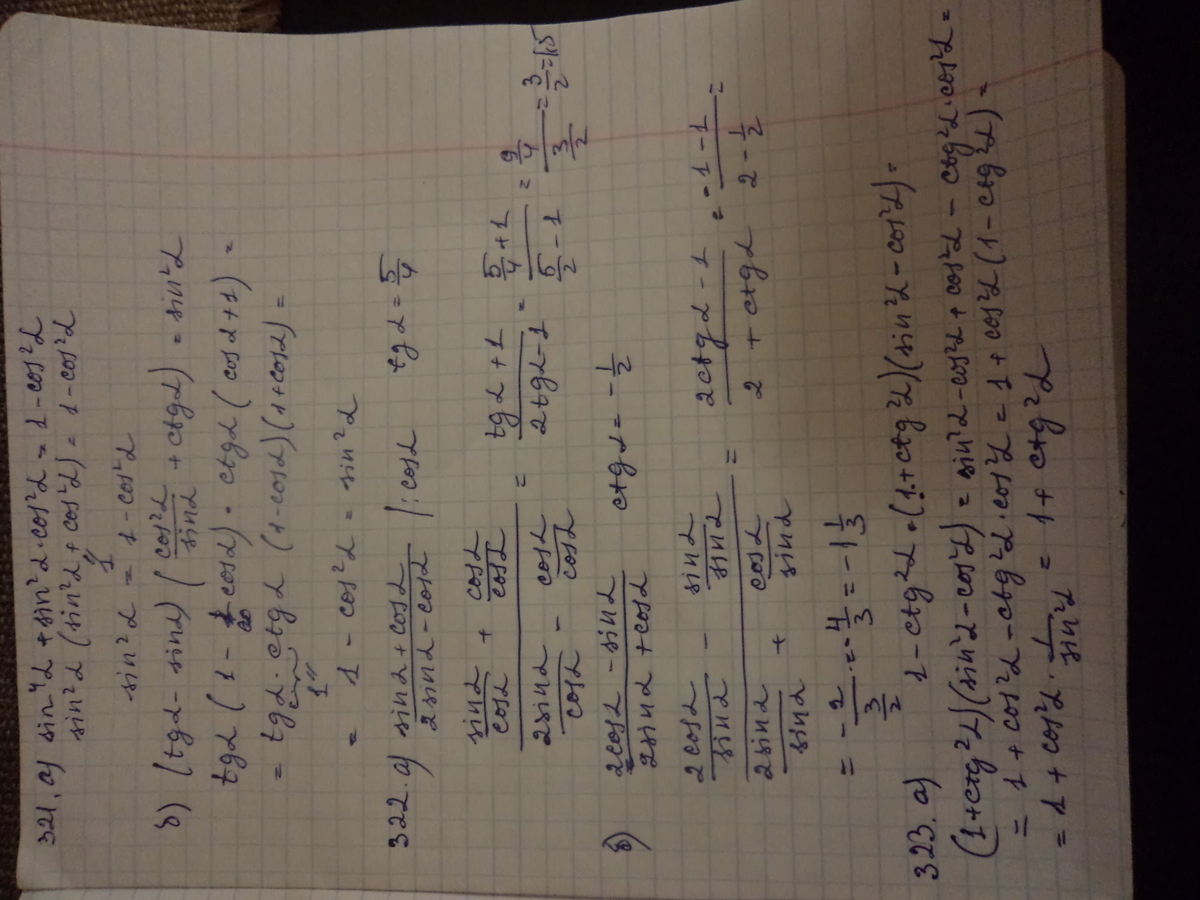 321. а) sin⁴α + sin²α·cos²α = 1 - cos²α
sin²α (sin²α + cos²α) = 1 - cos²α
1
sin²α = 1 - cos²α
б) (tgα - sinα) (cos²α/sinα + ctgα) = sin²α
tgα (1 - cosα) · ctgα (cosα + 1) =
= tgα · ctgα (1 - cosα)(1 + cosα) =
1
= 1 - cos²α = sin²α
322. а) (sinα + cosα)/(2sinα - cosα) |: cosα tgα = 5/4
(sinα/cosα + cosα/cosα)/(2sinα/cosα - cosα/cosα) = (tgα + 1)/(2tgα - 1) = (5/4 + 1)/(5/2 - 1) = (9/4)/(3/2) = 3/2 = 1,5
б) (2cosα - sinα)/(2sinα + cosα) ctgα = -1/2
(2cosα/sinα - sinα/sinα)/(2sinα/sinα + cosα/sinα) = (2ctgα - 1)/(2 + ctgα) = (-1 - 1)/(2 - 1/2) =
= -2/(3/2) = -4/3 = -1 1/3
323. а) 1 - ctg²α = (1 + ctg²α)(sin²α - cos²α) =
(1 + ctg²α)(sin²α - cos²α) = sin²α - cos²α + cos²α - ctg²α·cos²α =
= 1 + cos²α - ctg²α·cos²α = 1 + cos²α (1 - ctg²α) =
= 1 + cos²α · 1/sin²α = 1 + ctg²α